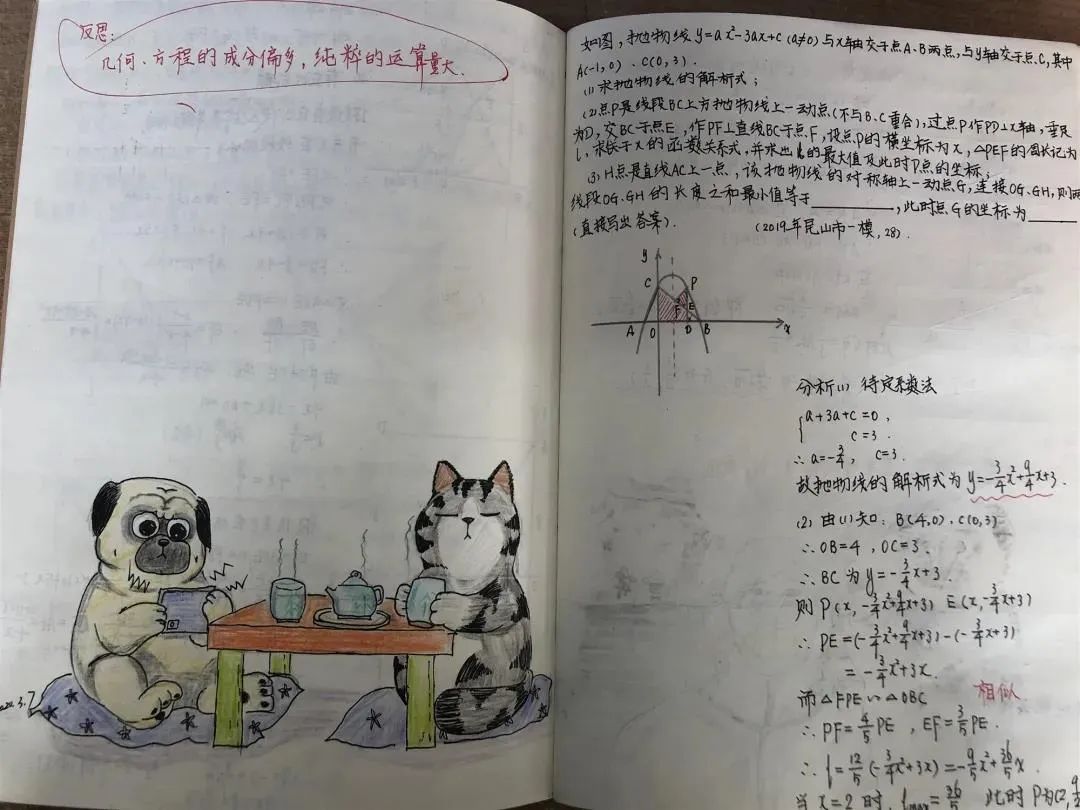 反思:
几何、方程的成分偏多，纯粹的运算量大.
2022.3.7
如图，抛物线y=ax²-3ax+c (a≠0)与x轴交于点A、B两点，与y轴交于点C，其中
A(-1,0)、C(0,3).
(1)求抛物线的解析式；
(2)点P是线段BC上方抛物线上一动点(不与B、C重合)，过点P作PD⊥x轴，垂足
为D，交BC于点E，作PF⊥直线BC于点F，设点P的横坐标为x，△PEF的周长记为
l，求l关于x的函数关系式，并求出l的最大值及此时P点的坐标；
(3)H点是直线AC上一点，该抛物线的对称轴上一动点G，连接OG、GH，则两
线段OG、GH的长度之和最小值等于________，此时点G的坐标为_____
(直接写出答案).  (2019年昆山市一模，28).
y
C P
F E
A O D B x
分析(1) 待定系数法
{a+3a+c=0，
c=3.
∴a=-3/4， c=3.
故抛物线的解析式为y=-3/4x²+9/4x+3.
(2) 由(1)知：B(4,0)、C(0,3)
∴OB=4，OC=3.
∴BC为y=-3/4x+3.
则P(x,-3/4x²+9/4x+3) E(x,-3/4x+3)
∴PE=(-3/4x²+9/4x+3)-(-3/4x+3)
=-3/4x²+3x.
而△FPE∽△OBC 相似
∴PF=4/5PE，EF=3/5PE.
∴l=12/5(-3/4x²+3x)=-9/5x²+36/5x.
当x=2时，lmax=36/5 此时P为(2,9